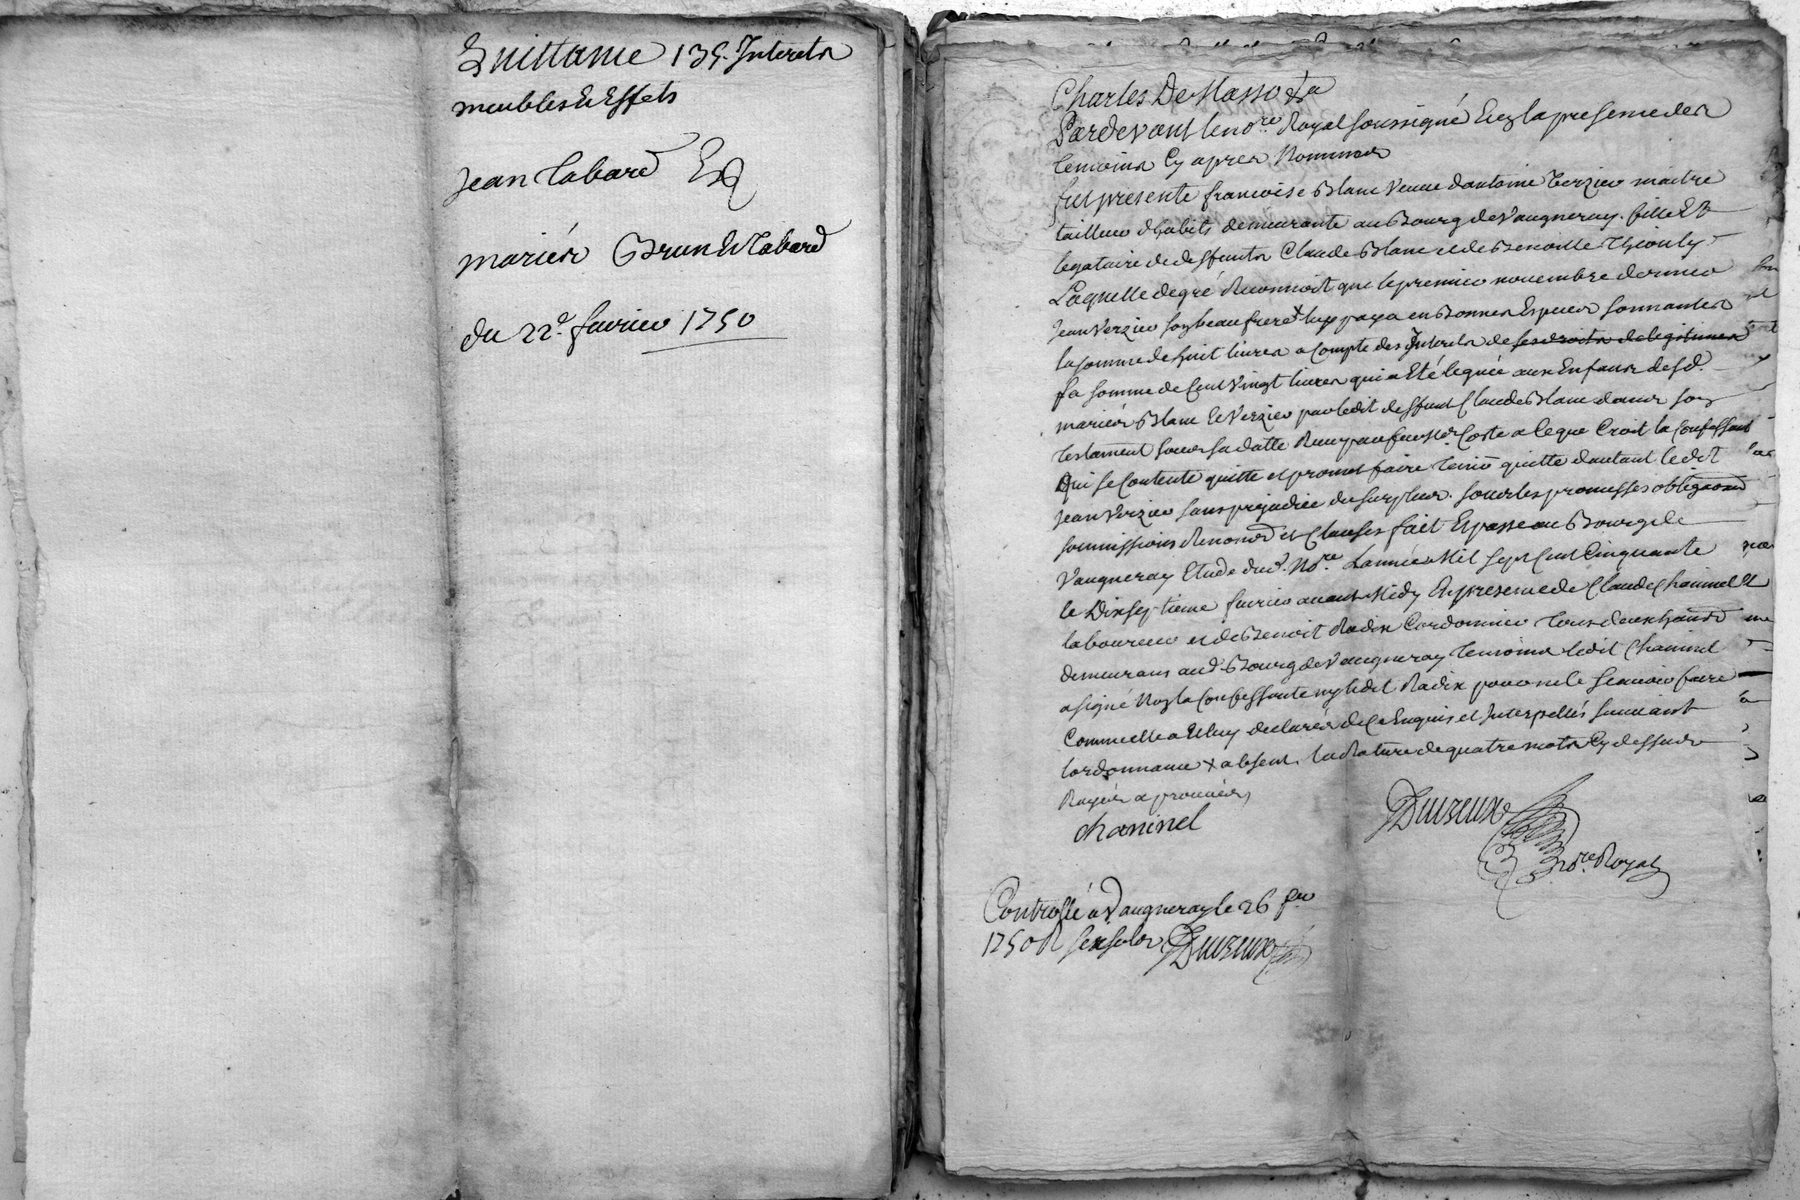 Quittance 135. Interets
meubles & Effets
Jean Tabard Ea
mariés Brun & Tabard
du 22e. fevrier 1750
Charles De Masso &a
Pardevant le nore. Royal soussigné Et en la presence des
temoins Cy apres Nommés
fut presente francoise Blanc Veuve dantoine Verzieu maitre
tailleur dhabits demeurante au Bourg de Vaugneray. fille Et
legataire de deffunts Claude Blanc et de Benoitte Thioly
Laquelle de gré Reconnoit que le premier novembre dernier
Jean Verzieu son beaufrere x luy paya en Bonnes Especes sonnantes
la somme de huit livres a Compte des Interets de ses droits de legitimes
la somme de Cent Vingt livres qui a Eté leguée aux Enfants desd.
mariés Blanc et Verzieu par ledit deffunt Claude Blanc dans son
testament sous sa datte Reçu par feu Me Coste a Ce que Croit la Confessante
Qui se Contente quitte et promet faire tenir quitte dautant ledit
Jean Verzieu sans prejudice du surplus. sous les promesses obligaons
soumissions Renonons et Clauses fait Et passé au Bourg de
Vaugneray Etude dud. Nore. Lannée Mil sept Cent Cinquante
le Dix septieme fevrier avant Midy En presence de Claude Chaninel
laboureur et de Benoit Radix Cordonnier tous deux habitans
demeurans aud. Bourg de Vaugneray temoins ledit Chaninel
a signé Non la Confessante ny ledit Radix pour ne le scavoir faire
Comme elle a Et luy declarés de Ce Enquis et Interpellés suivant
lordonnance x absent. la Rature de quatre mots Cy dessus
Rayés approuvée
Chaninel
Duvieux
Nore. Royal
Controllé a Vaugneray le 26 fer
1750 R six sols Duvieux